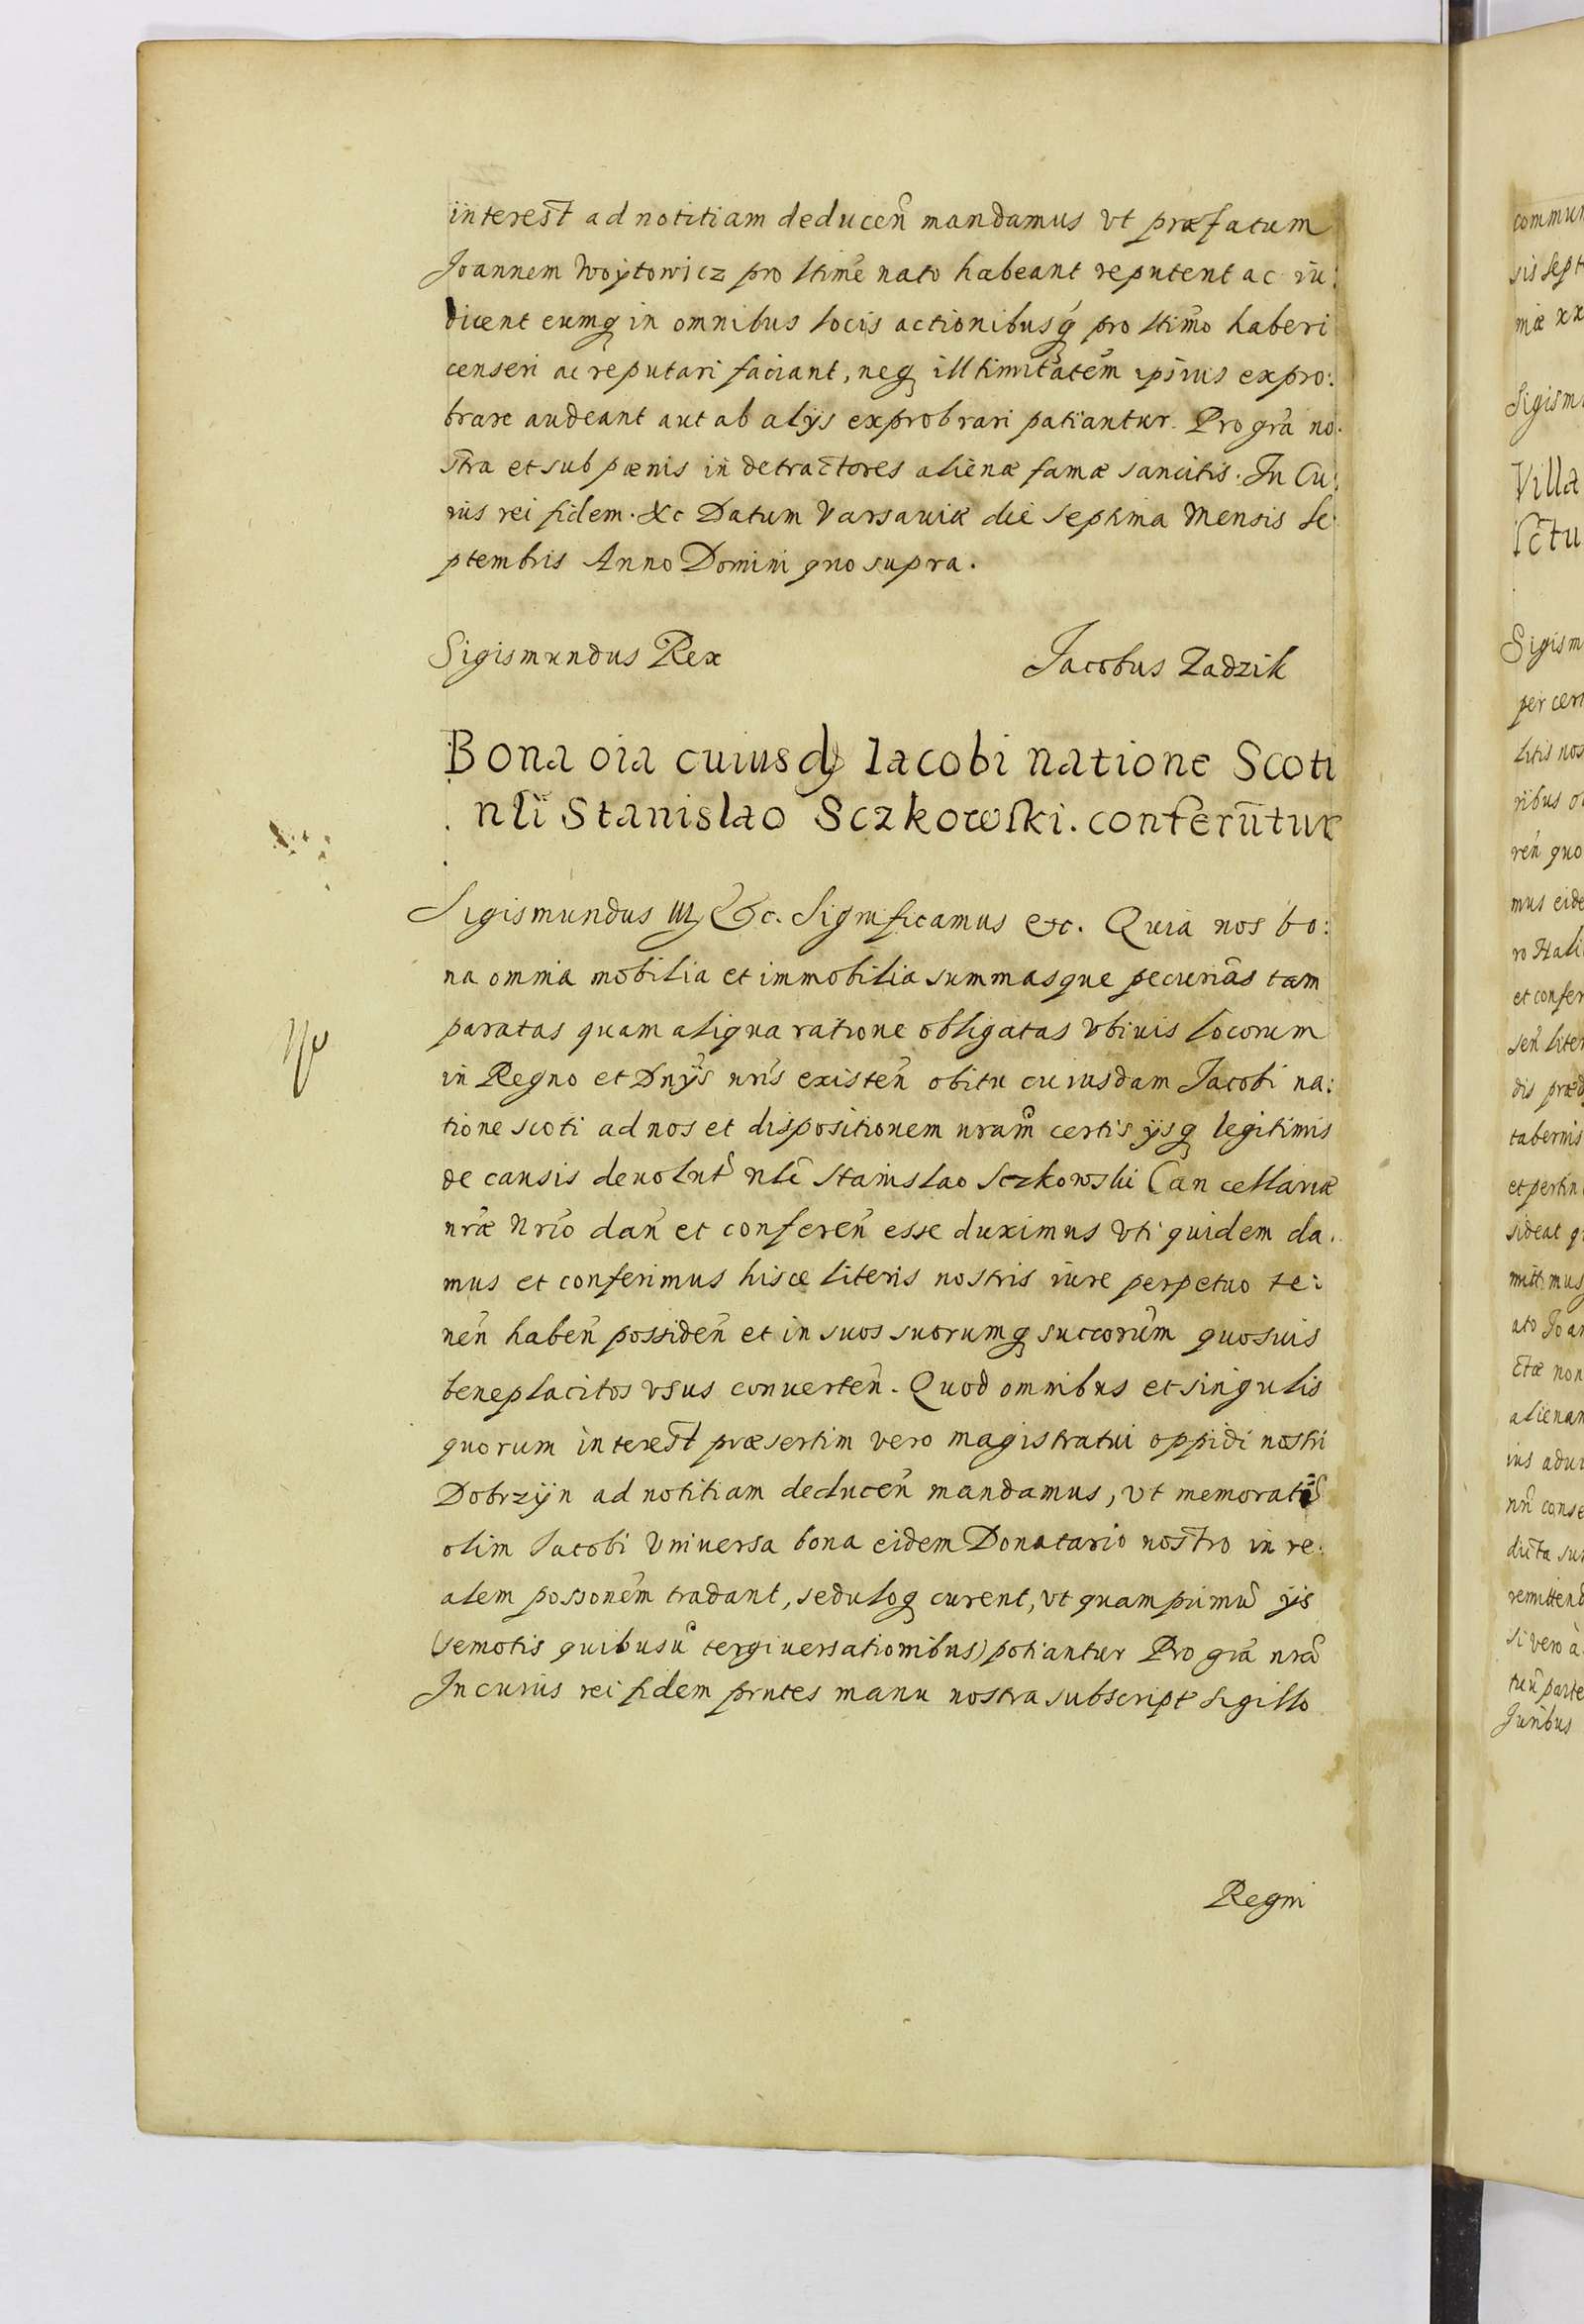 interest ad notitiam deducen̄ mandamus vt præfatum
Joannem Woÿtowicz pro ltimē nato habeant reputent ac iu:
dicent eumq̨ in omnibus locis actionibusq̨ pro ltimo haberi
censeri ac reputari faciant, neq̨ illtimitatem ipsius expro:
brare audeant aut ab alÿs exprobrari patiantur. Pro grā no:
stra et sub pænis in detractores alienæ famæ sancitis. In Cu:
ius rei fidem. &c Datum Varsaviæ die septima Mensis Se:
ptembris Anno Domini quo supra.
Sigismundus Rex
Jacobus Zadzik
Bona oia cuiusdꝫ Iacobi natione Scoti
nli Stanislao Sczkowski. conferūtur
Sigismundus III &c. Significamus etc. Quia nos bo:
na omnia mobilia et immobilia summasque pecuniās tam
paratas quam aliqua ratione obligatas vbiuis locorum
in Regno et Dnÿs nris existen̄ obitu cuiusdam Jacobi na:
tione scoti ad nos et dispositionem nram̄ certis ÿsq̨ legitimis
de causis deuolut̄ nlī Stanislao Sczkowski Cancellariæ
nræ Nrio dan̄ et conferen̄ esse duximus vti quidem da:
mus et conferimus hisce literis nostris iure perpetuo te:
nen̄ haben̄ possiden̄ et in suos suorumq̨ succorūm quosuis
beneplacitos vsus conuerten̄. Quod omnibus et singulis
quorum interest præsertim vero magistratui oppidi nostri
Dobrzÿn ad notitiam deducen̄ mandamus, vt memorati
olim Jacobi Vniuersa bona eidem Donatario nostro in re:
alem possonēm tradant, seduloq̨ curent, vt quam primū ÿs
(semotis quibusū tergiuersationibus) potiantur Pro grā nrā
In cuius rei fidem pntes manu nostra subscript̄ sigillo
Regni
commun
sis sept
miæ xx
Sigism
Villa
Sctu
Sigism
per cer
litis nos
ribus o
ren̄ quo
mus eide
ro Hali
et confer
sen̄ liter
dis præd
tabernis
et pertin
sideat q
mittimus
ato Joan
ctæ non
alienan
ius adui
nn̄ conse
dicta su
remittend
si vero à
tuū parte
Juribus